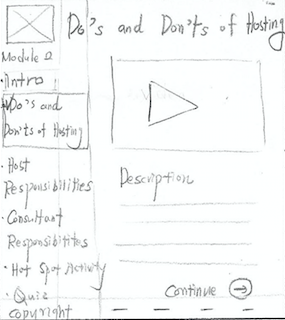 Do's and Don'ts of Hosting
Module 2
· Intro
· Do's and
Don'ts of Hosting
· Host
Responsibilities
· Consultant
Responsibilites
· Hot Spot Activity
· Quiz
copyright
Description
Continue